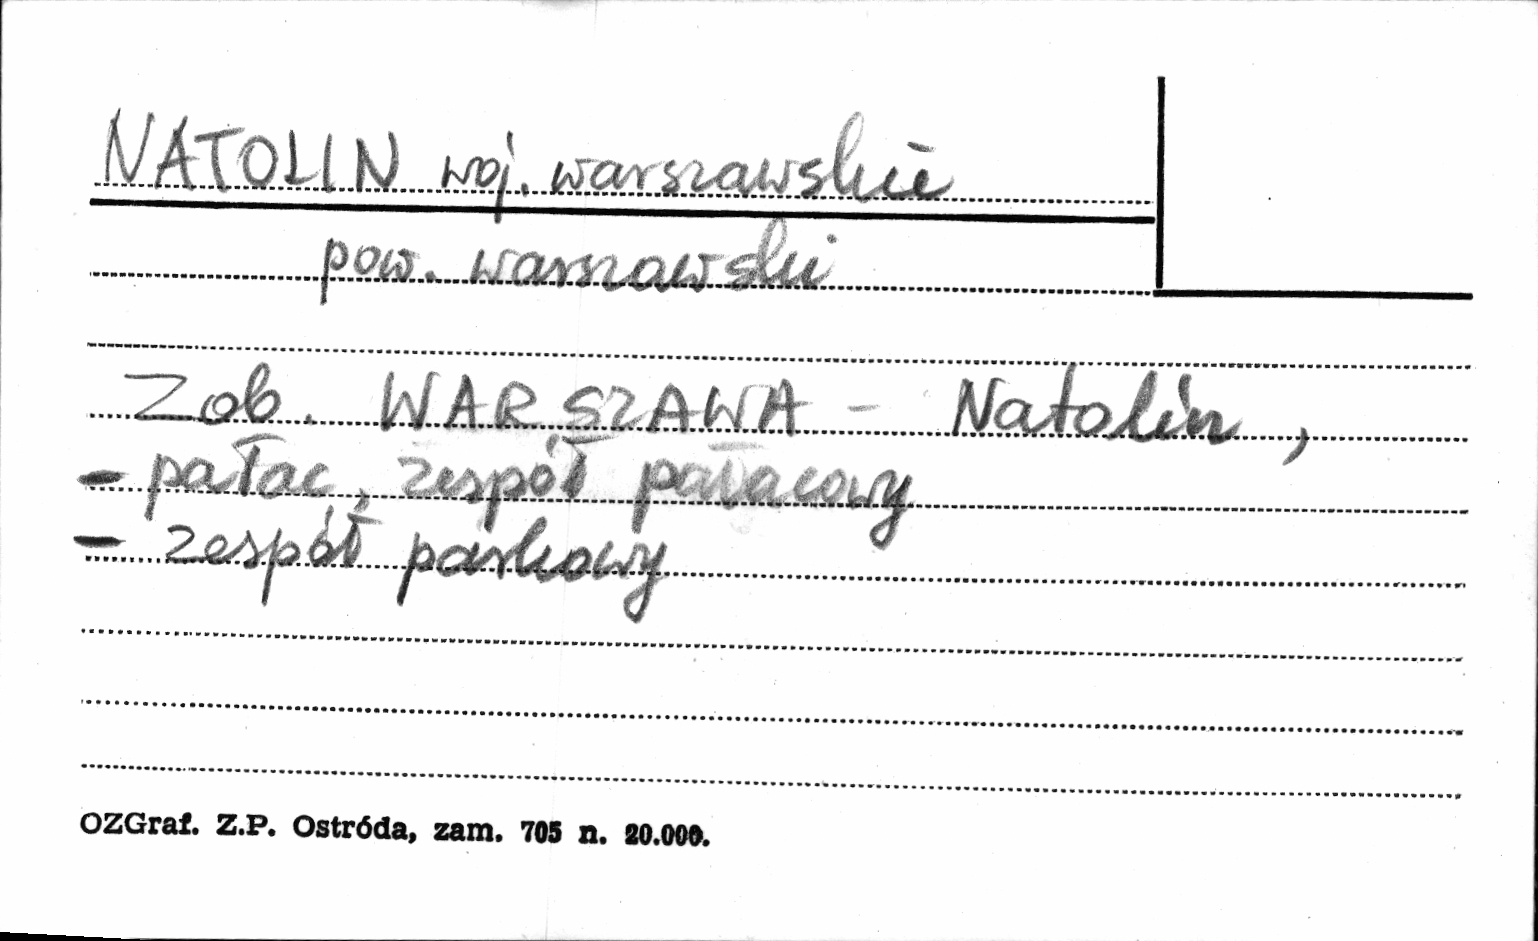 NATOLIN woj. warszawskie
pow. warszawski
Zob. WARSZAWA - Natolin,
- pałac, zespół pałacowy
- zespół parkowy
OZGraf. Z.P. Ostróda, zam. 705 n. 20.000.